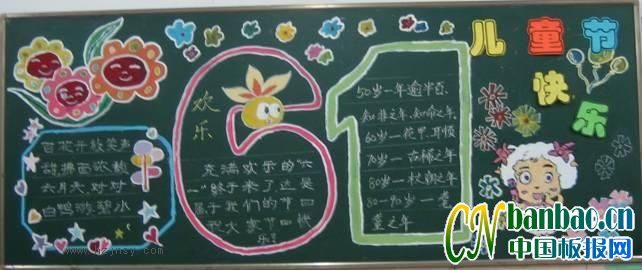 儿童节
快乐
欢
乐
61
百花开放笑声
甜拂面歌载
六月天对对
白鸭游碧小
充满欢乐的“六
一”终于来了这是
属于我们的节日
祝大家节日快
乐！
50岁一年逾半百、
知非之年、知命之年
60岁一花甲、耳顺
70岁一古稀之年
80岁一杖朝之年
80-90岁一耄
耋之年
CN-banbao.cn
中国板报网